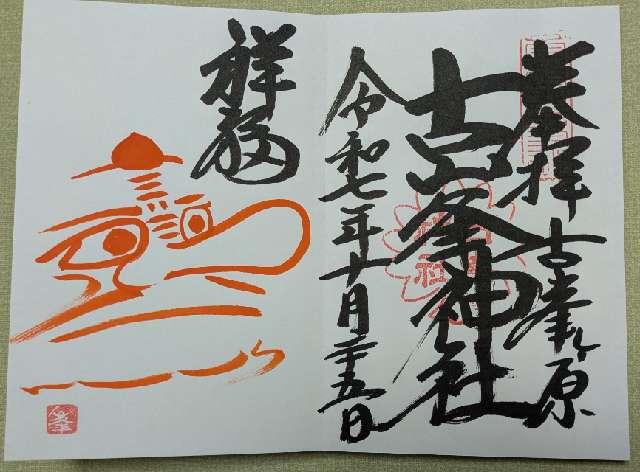 奉拝 古峯ヶ原
古峯神社
令和七年十月二十五日
祥福